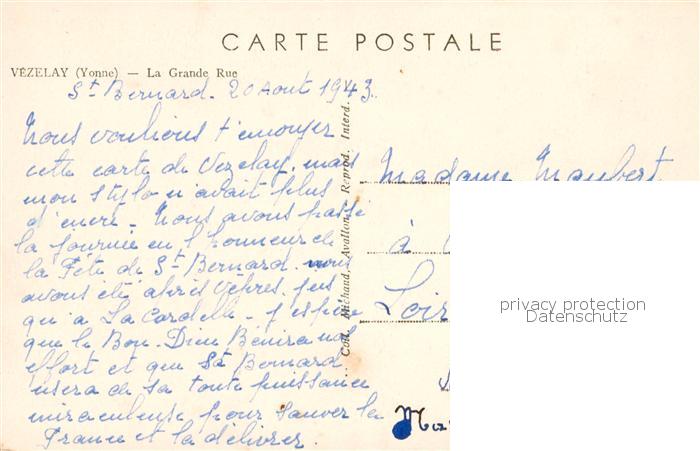 CARTE POSTALE
VÉZELAY (Yonne) — La Grande Rue
St Bernard. 20 Aout 1943.
Nous voulions t'envoyer
cette carte de Vezelay, mais
mon stylo n'avait plus
d'encre - Nous avons passé
la journée en l'honneur de
la Fête de St Bernard. nous
avons été après Vêpres, jus
qu'à La Cordelle - J'espère
que le Bon-Dieu Bénira not
effort et que St Bernard
usera de sa toute puissance
miraculeuse pour sauver la
France et la délivrer.
Coll. Michaud, Avallon. Reprod. Interd.
Madame Maubert
à
Loir
privacy protection
Datenschutz